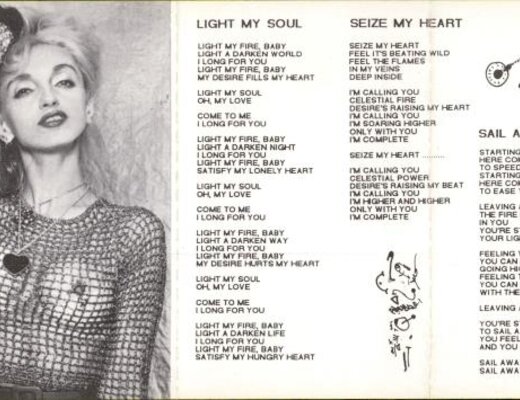 LIGHT MY SOUL
LIGHT MY FIRE, BABY
LIGHT A DARKEN WORLD
I LONG FOR YOU
LIGHT MY FIRE, BABY
MY DESIRE FILLS MY HEART
LIGHT MY SOUL
OH, MY LOVE
COME TO ME
I LONG FOR YOU
LIGHT MY FIRE, BABY
LIGHT A DARKEN NIGHT
I LONG FOR YOU
LIGHT MY FIRE, BABY
SATISFY MY LONELY HEART
LIGHT MY SOUL
OH, MY LOVE
COME TO ME
I LONG FOR YOU
LIGHT MY FIRE, BABY
LIGHT A DARKEN WAY
I LONG FOR YOU
LIGHT MY FIRE, BABY
MY DESIRE HURTS MY HEART
LIGHT MY SOUL
OH, MY LOVE
COME TO ME
I LONG FOR YOU
LIGHT MY FIRE, BABY
LIGHT A DARKEN LIFE
I LONG FOR YOU
LIGHT MY FIRE, BABY
SATISFY MY HUNGRY HEART
SEIZE MY HEART
SEIZE MY HEART
FEEL IT'S BEATING WILD
FEEL THE FLAMES
IN MY VEINS
DEEP INSIDE
I'M CALLING YOU
CELESTIAL FIRE
DESIRE'S RAISING MY HEART
I'M CALLING YOU
I'M SOARING HIGHER
ONLY WITH YOU
I'M COMPLETE
SEIZE MY HEART .........
I'M CALLING YOU
CELESTIAL POWER
DESIRE'S RAISING MY BEAT
I'M CALLING YOU
I'M HIGHER AND HIGHER
ONLY WITH YOU
I'M COMPLETE
SAIL A
STARTING
HERE COM
TO SPEED
STARTING
HERE COM
TO EASE
LEAVING A
THE FIRE
IN YOU
YOU'RE ST
YOUR LIG
FEELING
YOU CAN
GOING HIG
FEELING T
YOU CAN
WITH THE
LEAVING
YOU'RE ST
TO SAIL A
YOU FEEL
AND YOU
SAIL AWA
SAIL AWA